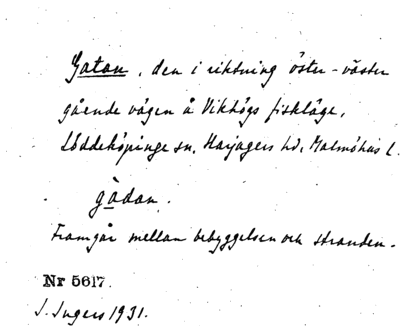 Gatan, den i riktning öster-väster
gående vägen å Vikhögs fiskläge,
Löddeköpinge sn, Harjagers hd, Malmöhus l.
gàdan.
Framgår mellan bebyggelsen och stranden.
Nr 5617.
I. Ingers 1931.